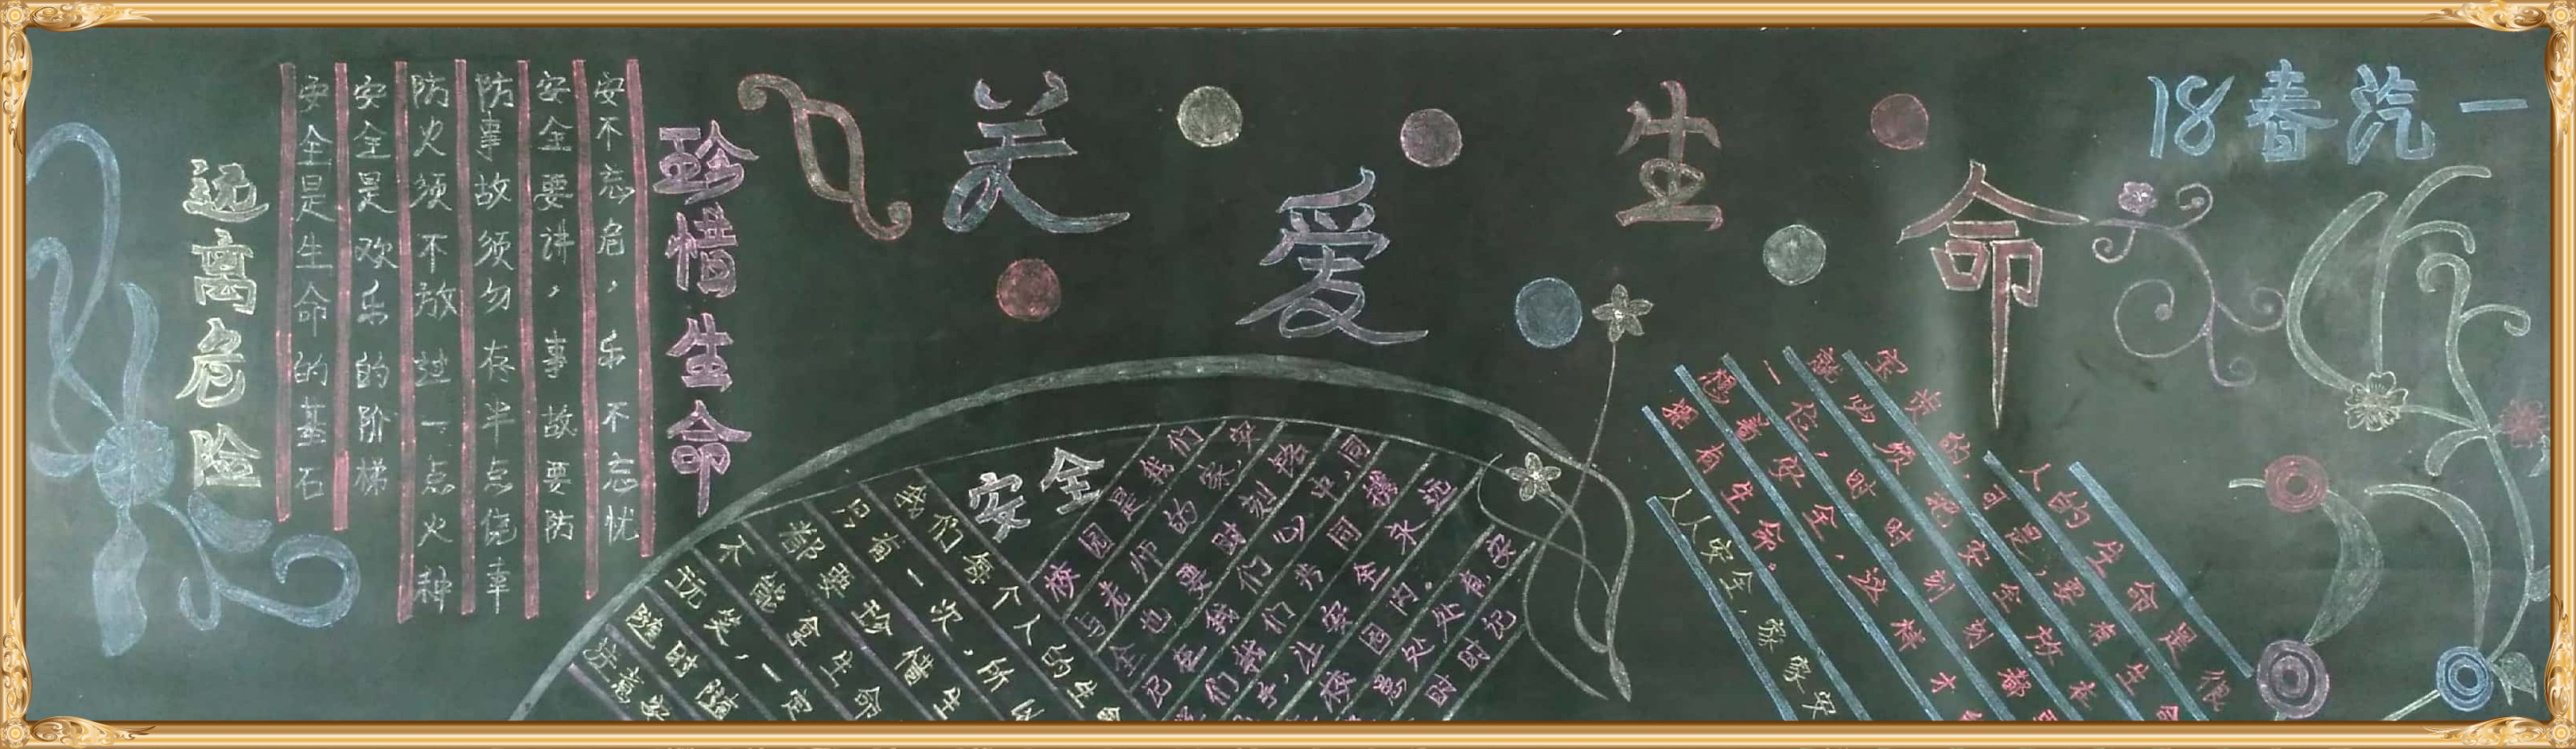 关爱生命
18春汽一
珍惜生命
安不忘危，乐不忘忧
安全要讲，事故要防
防事故须勿存半点侥幸
防火须不放过一点火种
安全是欢乐的阶梯
安全是生命的基石
远离危险
安全
我们每个人的生命
只有一次，所以
都要珍惜生
不能拿生命
玩笑，一定
随时随
注意安
校园是我们
与老师的家，安
全也要时刻铭
记在我们心中，同
们我们共同撑
手，让安全永远
人的生命是很
宝贵的，可是，要有生命
就必须把安全放在
一位，时时刻刻都
想着安全，这样才
算有生命。
人人安全，家家安